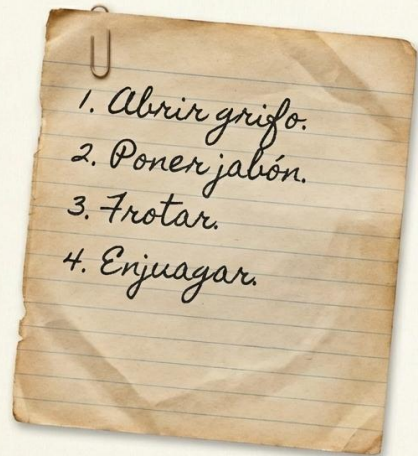 1. Abrir grifo.
2. Poner jabón.
3. Frotar.
4. Enjuagar.